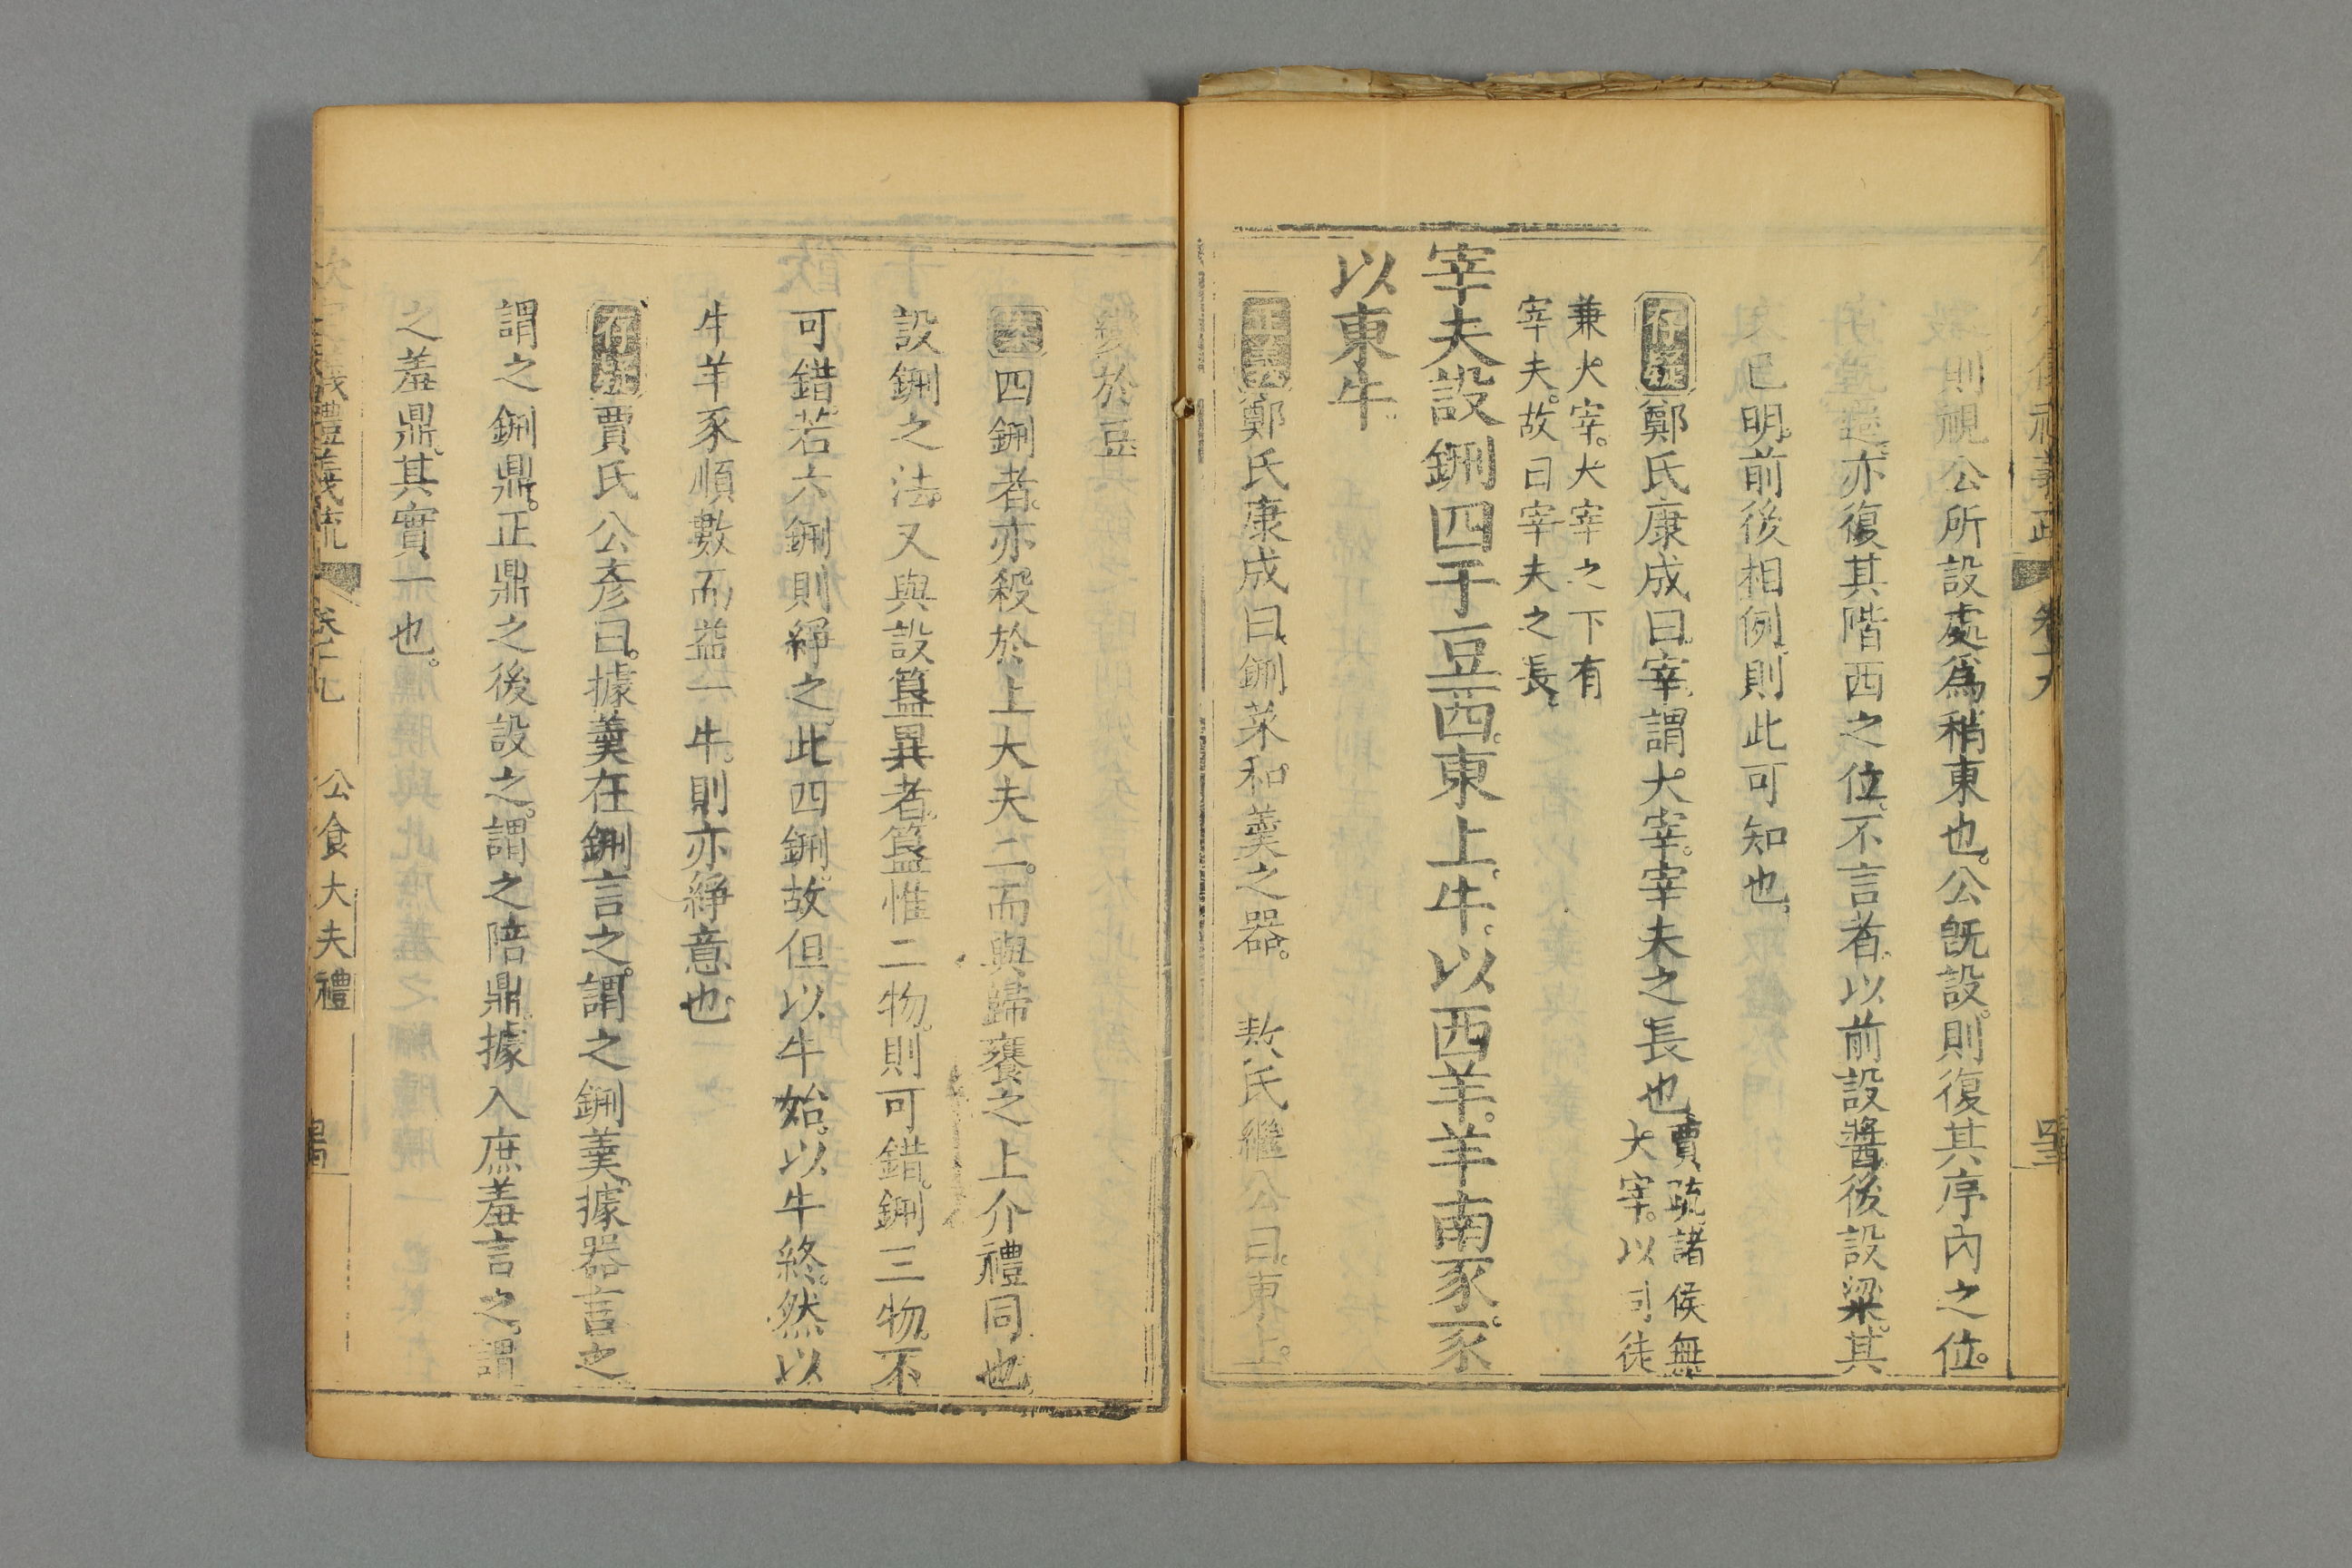 則視公所設處爲稍東也。公旣設。則復其序內之位。
亦復其階西之位。不言者。以前設醬後設粱。其
已明。前後相例。則此可知也。
存疑鄭氏康成曰。宰謂大宰。宰夫之長也賈疏諸侯無
大宰。以司徒
兼大宰。大宰之下有
宰夫。故曰宰夫之長。
宰夫設鉶四于豆西。東上。牛。以西羊。羊南豕。豕
以東牛。
正義鄭氏康成曰。鉶菜和羹之器。 敖氏繼公曰。東上。
變於豆
案四鉶者。亦殺於上大夫二。而與歸饔之上介禮同也。
設鉶之法。又與設簋異者。簋惟二物。則可錯。鉶三物。不
可錯。若六鉶則綪之。此四鉶。故但以牛始。以牛終。然以
牛羊豕順數而益一牛。則亦綪意也
存疑賈氏公彥曰。據羹在鉶言之。謂之鉶羹。據器言之
謂之鉶鼎。正鼎之後設之。謂之陪鼎。據入庶羞言之。謂
之羞鼎。其實一也。
儀禮義疏 卷十九 公食大夫禮